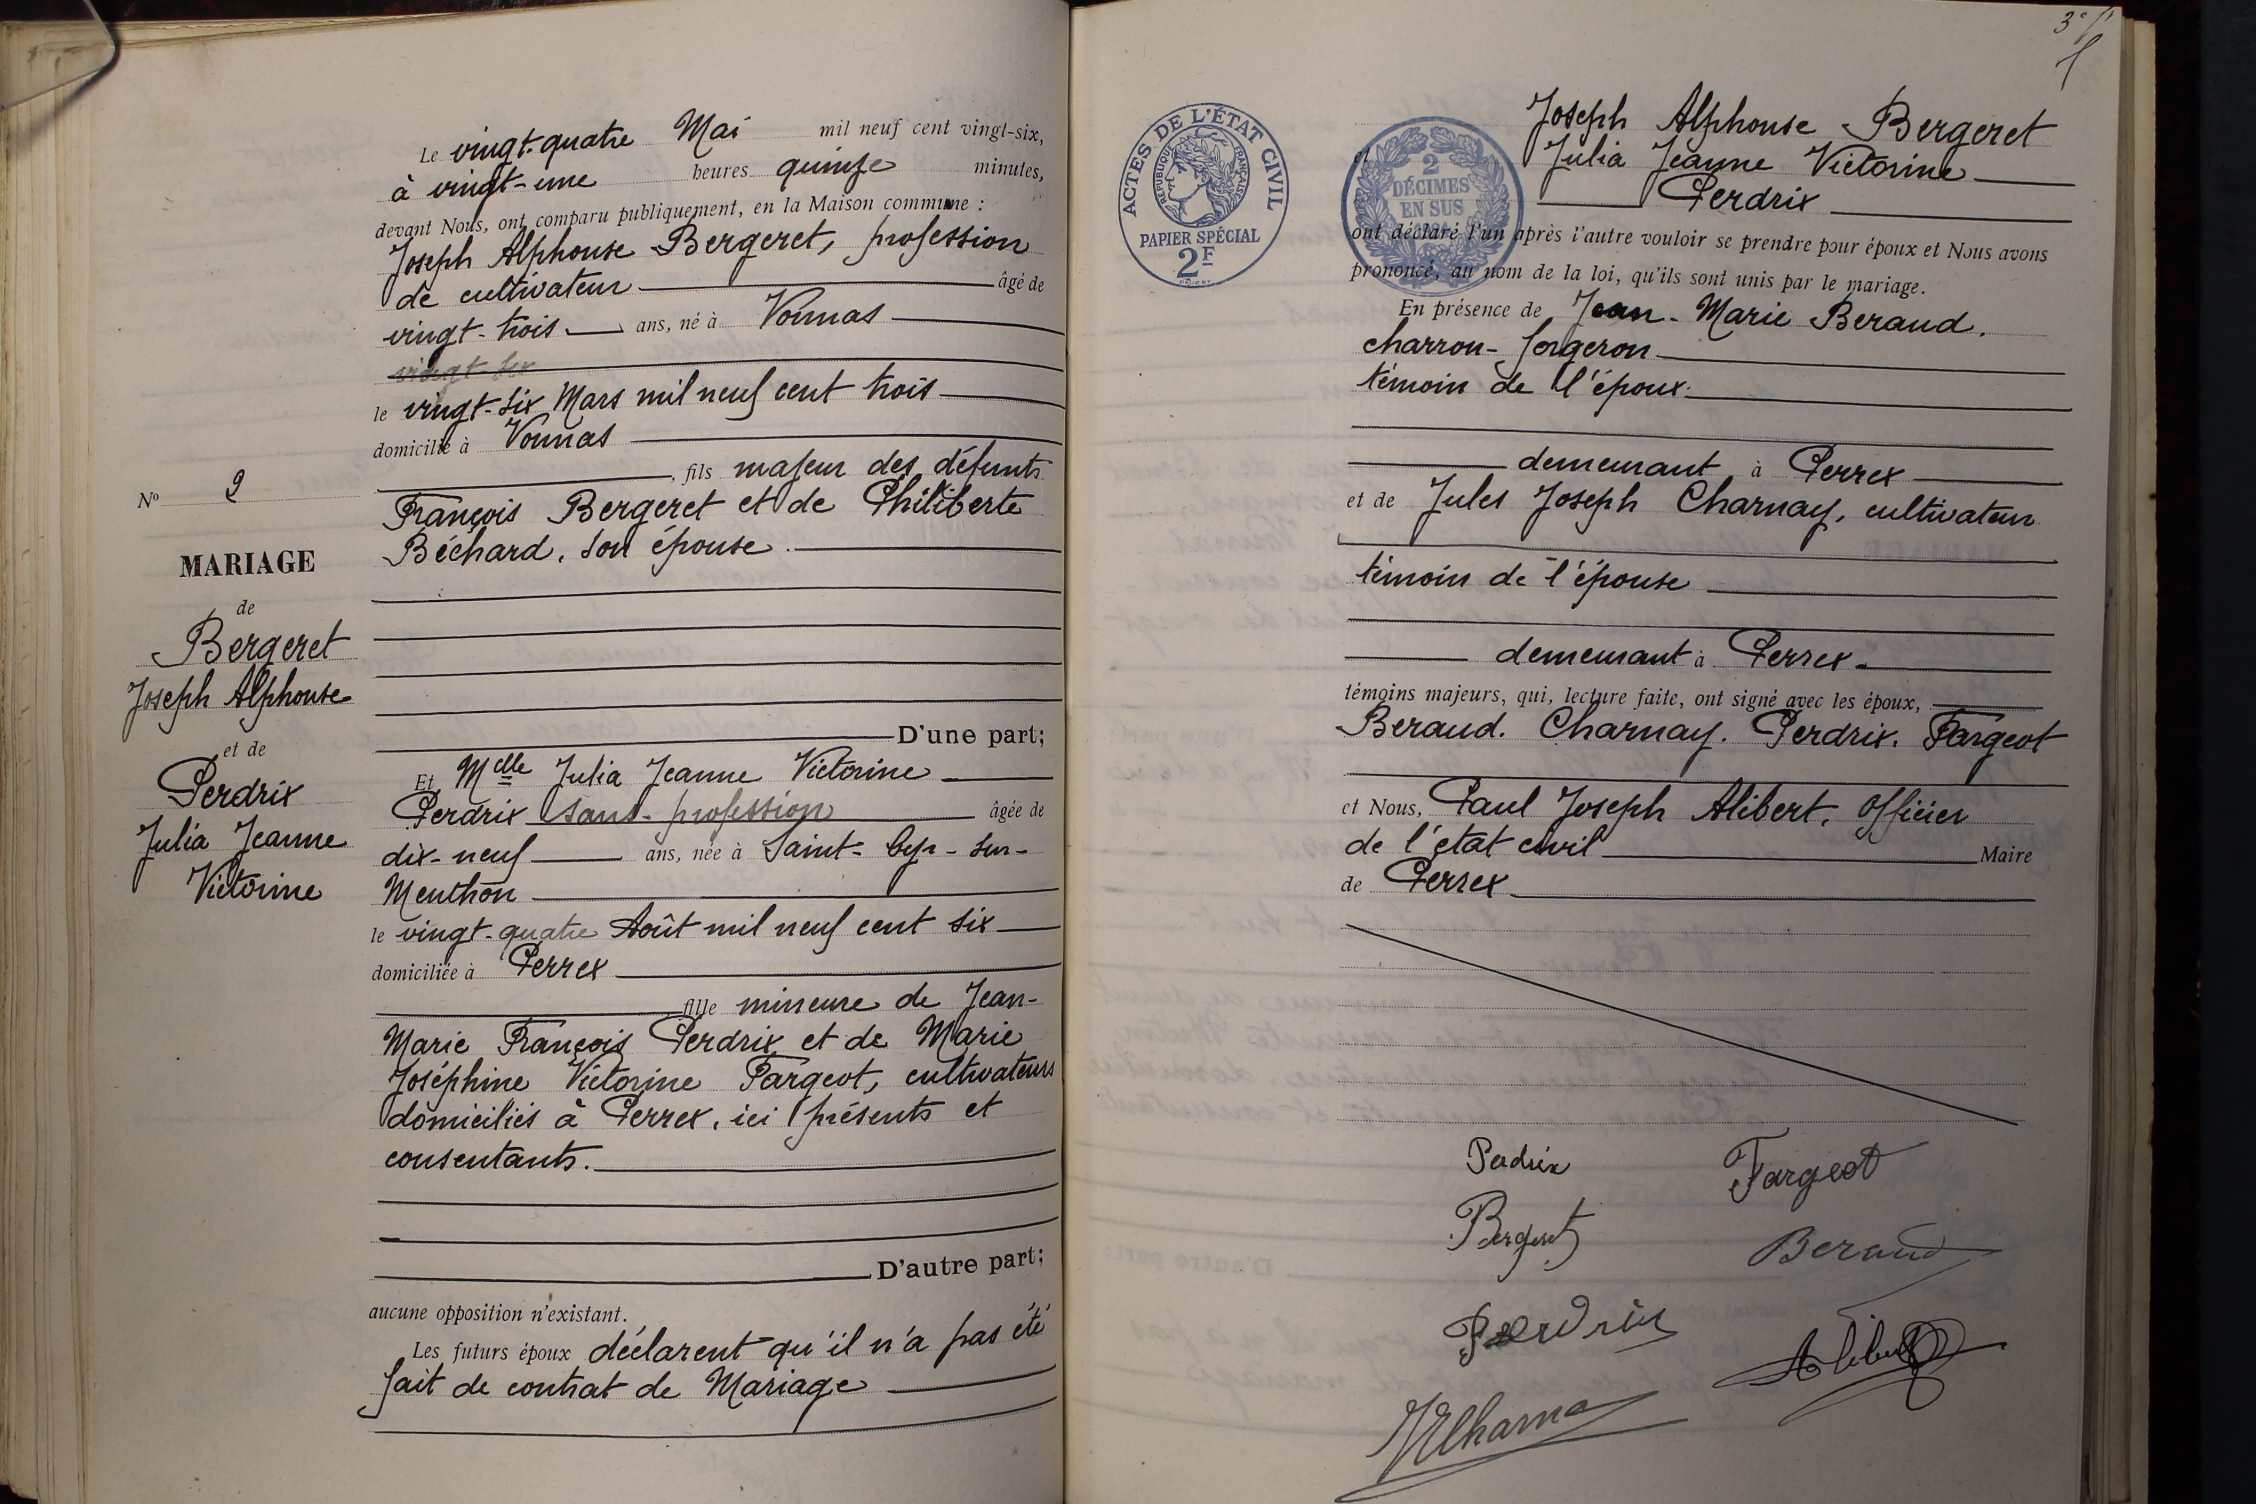 Le vingt-quatre Mai mil neuf cent vingt-six,
à vingt-une heures quinze minutes,
devant Nous, ont comparu publiquement, en la Maison commune :
Joseph Alphonse Bergeret, profession
de cultivateur âgé de
vingt-trois ans, né à Vonnas
vingt six
le vingt-six Mars mil neuf cent trois
domicilié à Vonnas
, fils majeur des défunts
François Bergeret et de Philiberte
Béchard, son épouse.
D'une part;
Et Melle Julia Jeanne Victorine
Perdrix sans-profession âgée de
dix-neuf ans, née à Saint-Cyr-sur-
Menthon
le vingt-quatre Août mil neuf cent six
domiciliée à Perrex
fille mineure de Jean-
Marie François Perdrix et de Marie
Joséphine Victorine Fargeot, cultivateurs
domiciliés à Perrex, ici présents et
consentants.
D'autre part;
aucune opposition n'existant.
Les futurs époux déclarent qu'il n'a pas été
fait de contrat de Mariage
No 2
MARIAGE
de
Bergeret
Joseph Alphonse
et de
Perdrix
Julia Jeanne
Victorine
3e f
ACTES DE L'ÉTAT CIVIL
RÉPUBLIQUE FRANÇAISE
PAPIER SPÉCIAL
2F
2
DÉCIMES
EN SUS
Joseph Alphonse Bergeret
et Julia Jeanne Victorine
Perdrix
ont déclaré l'un après l'autre vouloir se prendre pour époux et Nous avons
prononcé, au nom de la loi, qu'ils sont unis par le mariage.
En présence de Jean-Marie Beraud.
charron-forgeron
témoin de l'époux.
demeurant à Perrex
et de Jules Joseph Charnay, cultivateur
témoin de l'épouse
demeurant à Perrex.
témoins majeurs, qui, lecture faite, ont signé avec les époux,
Beraud. Charnay. Perdrix. Fargeot
et Nous, Paul Joseph Alibert, Officier
de l'état civil Maire
de Perrex
Perdrix Fargeot
Bergeret Beraud
Perdrix Alibert